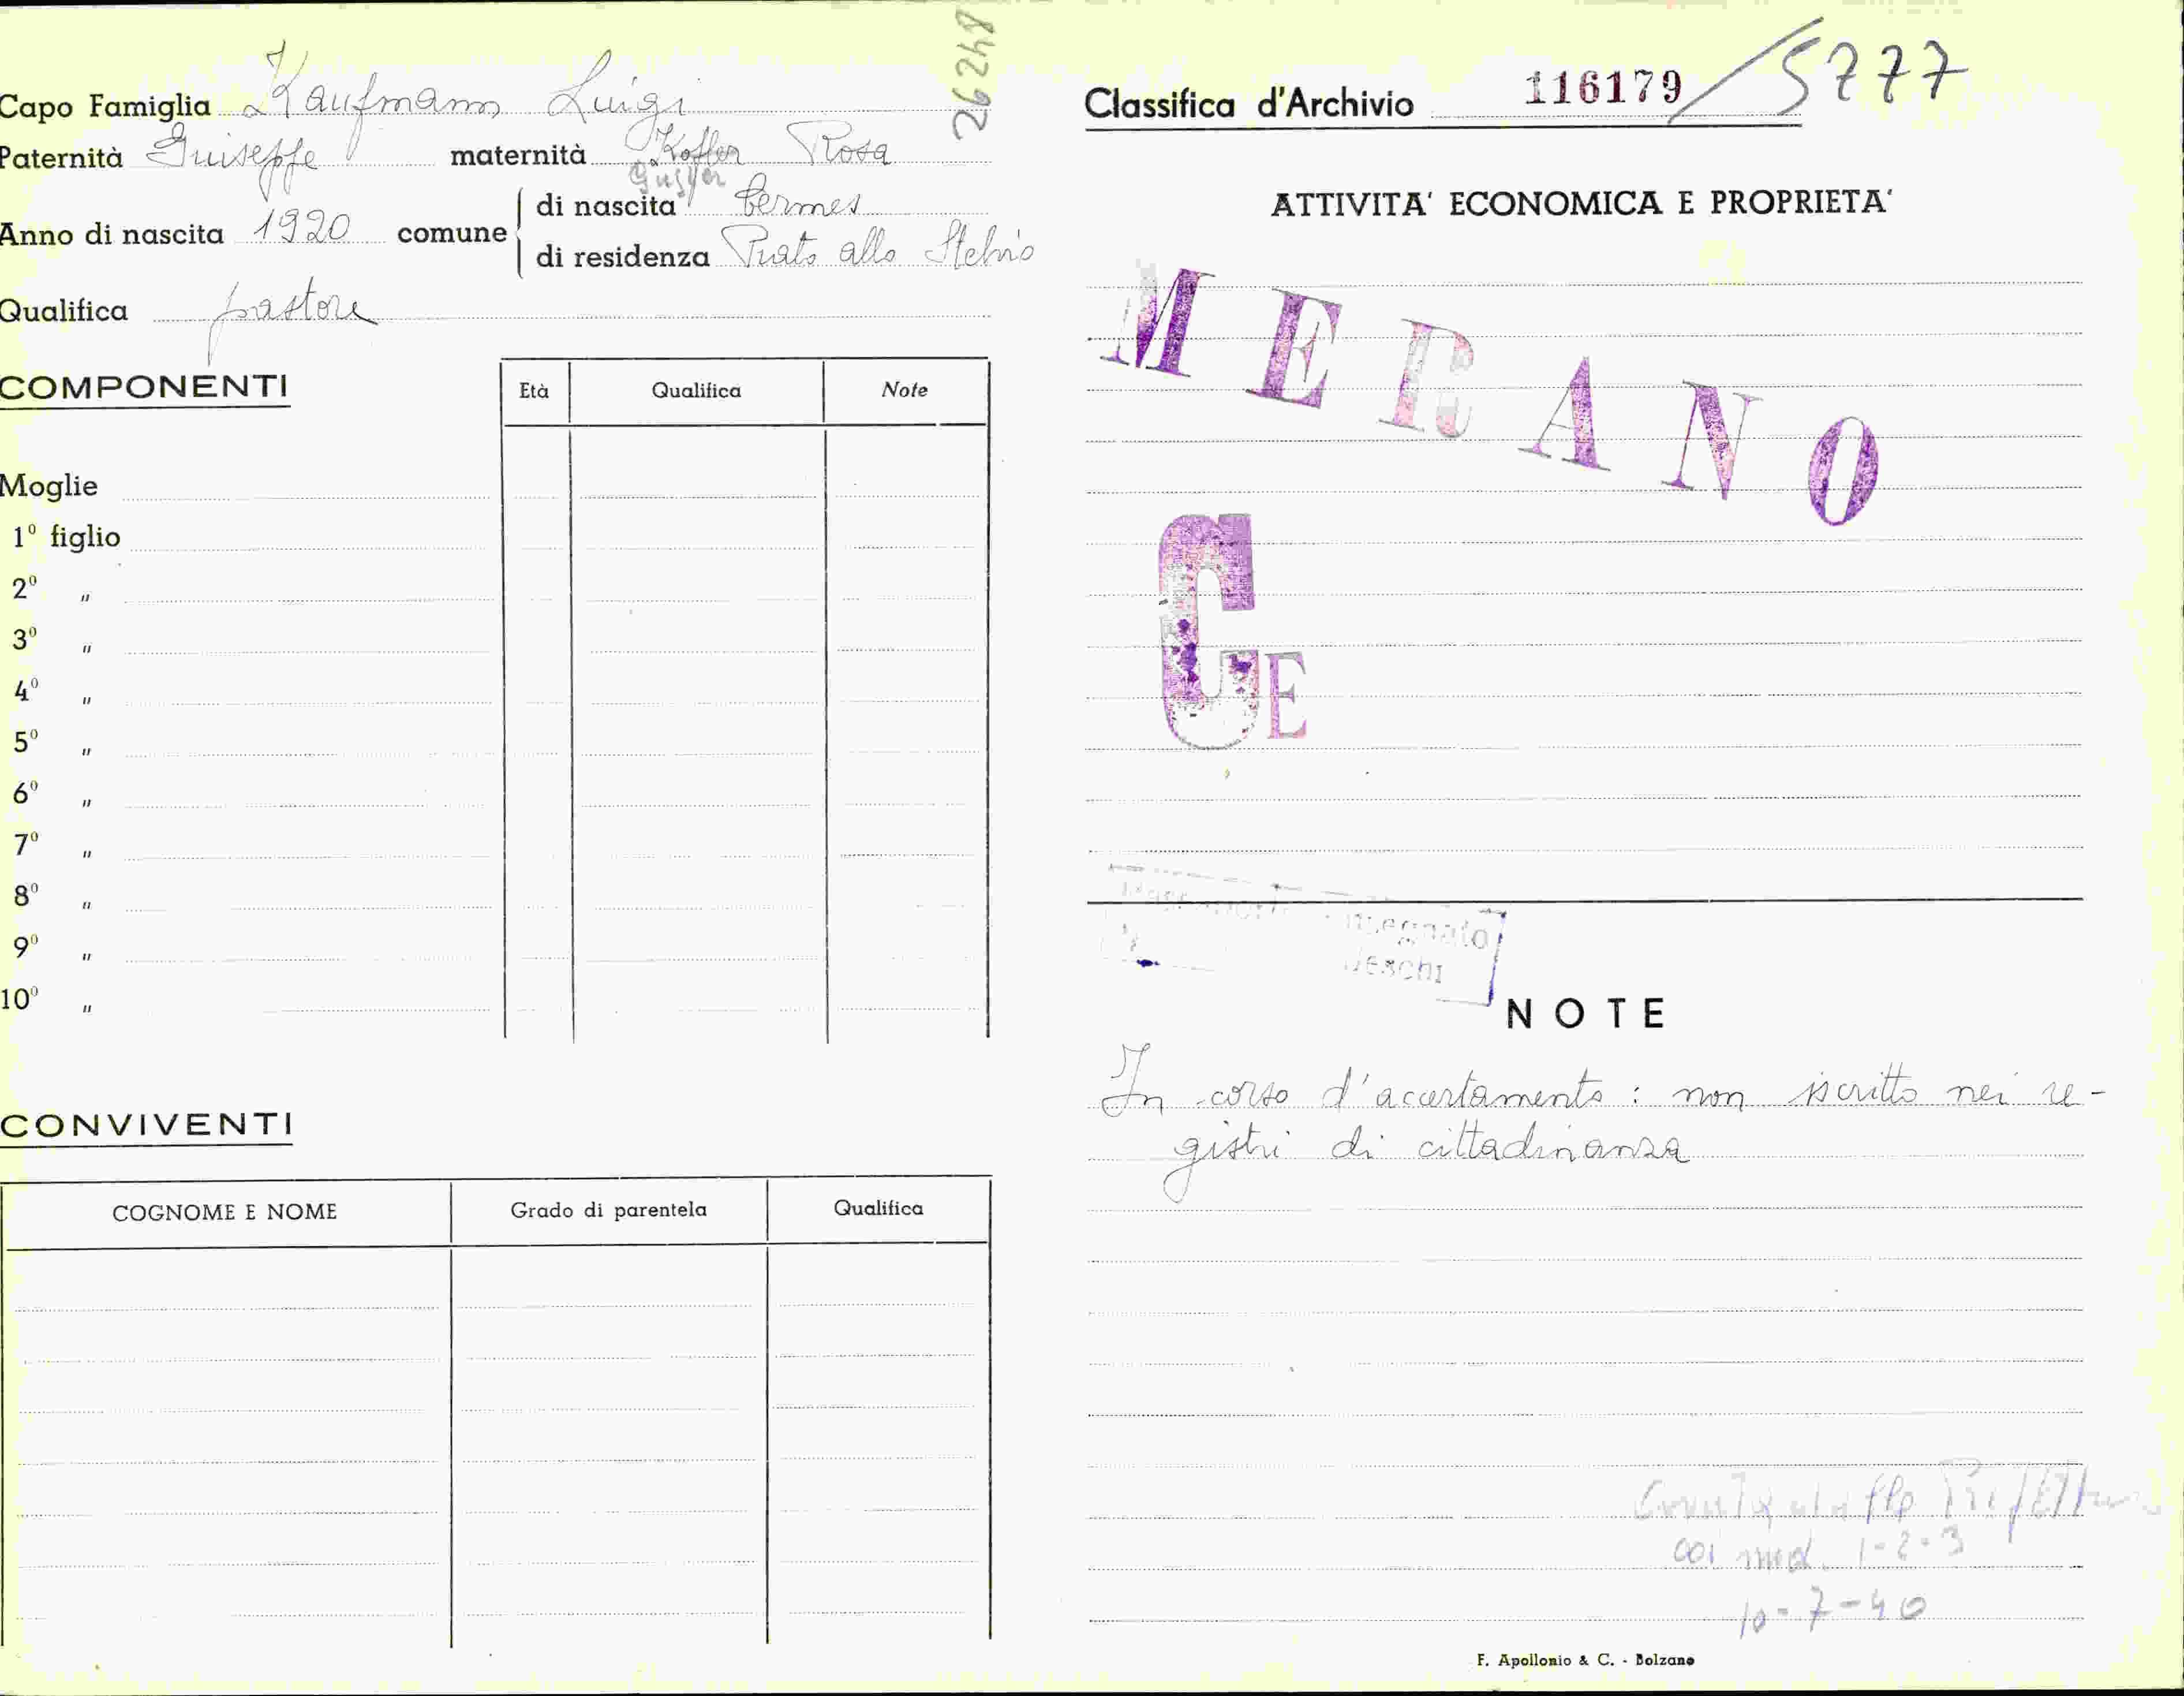 Capo Famiglia Kaufmann Luigi
26248
Paternità Giuseppe maternità Kofler Rosa
Gusfer
Anno di nascita 1920 comune di nascita Cermes
di residenza Prato allo Stelvio
Qualifica pastore
COMPONENTI
Età Qualifica Note
Moglie
1º figlio
2º "
3º "
4º "
5º "
6º "
7º "
8º "
9º "
10º "
CONVIVENTI
COGNOME E NOME Grado di parentela Qualifica
Classifica d'Archivio 116179/5777
ATTIVITA' ECONOMICA E PROPRIETA'
MERANO
C E
NOTE
In corso d'accertamento: non iscritto nei re-
gistri di cittadinanza
coi mod. 1-2-3
10-7-40
F. Apollonio & C. - Bolzano